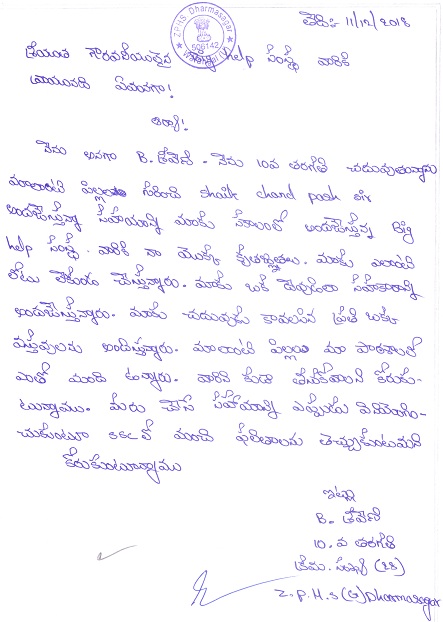 తేది:- 11/12/2018
Z.P.H.S Dharmasagar
506142
Warangal (U)
శ్రీయుత గౌరవనీయులైన Big help సంస్థ వారికి
వ్రాయునది ఏమనగా!
ఆర్యా!
నేను అనగా B. త్రివేణి. నేను 10వ తరగతి చదువుతున్నాను
మాలాంటి పిల్లలకు గురించి Shaik chand pash sir
అందజేస్తున్న సహాయాన్ని మాకు సకాలంలో అందజేస్తున్న Big
help సంస్థ. వారికి నా యొక్క కృతజ్ఞతలు. మాకు ఎలాంటి
లోటు లేకుండా చేస్తున్నారు. మాకు ఒక దేవుడిలా సహకారాన్ని
అందజేస్తున్నారు. మాకు చదువుకు కావలసిన ప్రతి ఒక్క
వస్తువులను అందిస్తున్నారు. మాలాంటి పిల్లలు మా పాఠశాలలో
ఎంతో మంది ఉన్నారు. వారిని కుడా తీసుకోవాలని కోరుకు-
టున్నాము. మీరు చేసే సహాయాన్ని ఎప్పుడు వినియోగిం-
చుకుంటూ SSC లో మంచి ఫలితాలను తెచ్చుకుంటామని
కోరుకుంటున్నాము
ఇట్లు
B. త్రివేణి
10. వ తరగతి
క్రమ. సంఖ్య (28)
Z.P.H.S (G) Dharmasagar